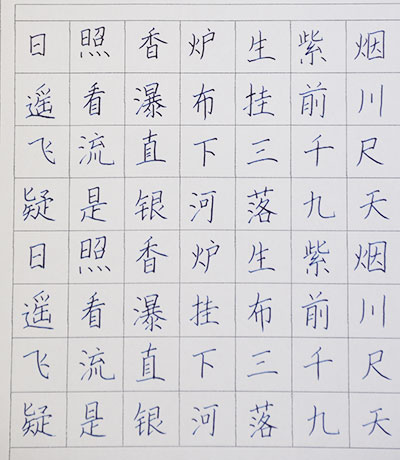 日照香炉生紫烟
遥看瀑布挂前川
飞流直下三千尺
疑是银河落九天
日照香炉生紫烟
遥看瀑挂布前川
飞流直下三千尺
疑是银河落九天